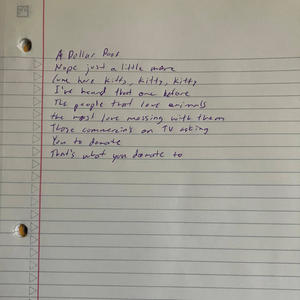 A Dollar Poor
Nope just a little more
Come here kitty, kitty, kitty
I've heard that one before
The people that love animals
the most love messing with them
Those commercials on TV asking
You to donate
That's what you donate to